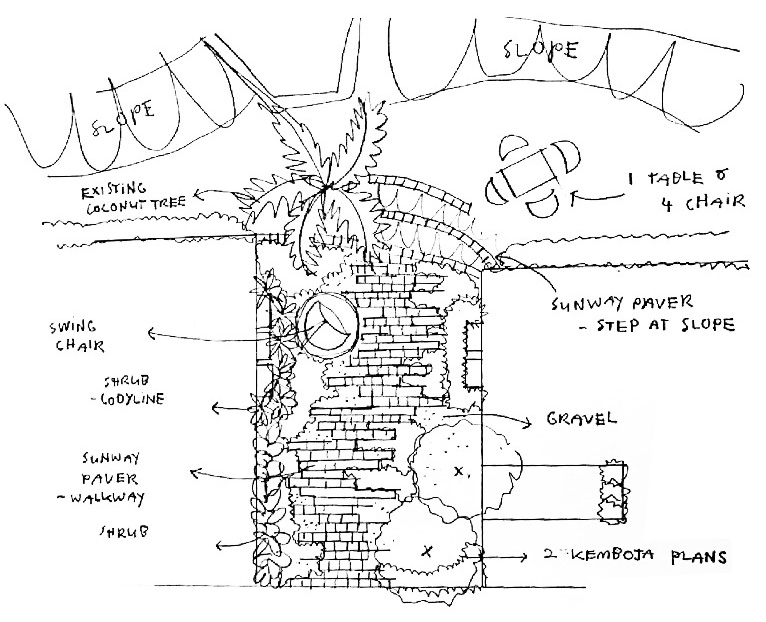 SLOPE
SLOPE
EXISTING
COCONUT TREE
1 TABLE &
4 CHAIR
SUNWAY PAVER
- STEP AT SLOPE
SWING
CHAIR
SHRUB
- CODYLINE
GRAVEL
SUNWAY
PAVER
- WALKWAY
SHRUB
2 KEMBOJA PLANS